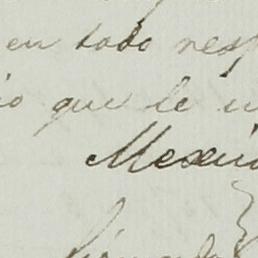 en todo resp
io que le u
Mexic